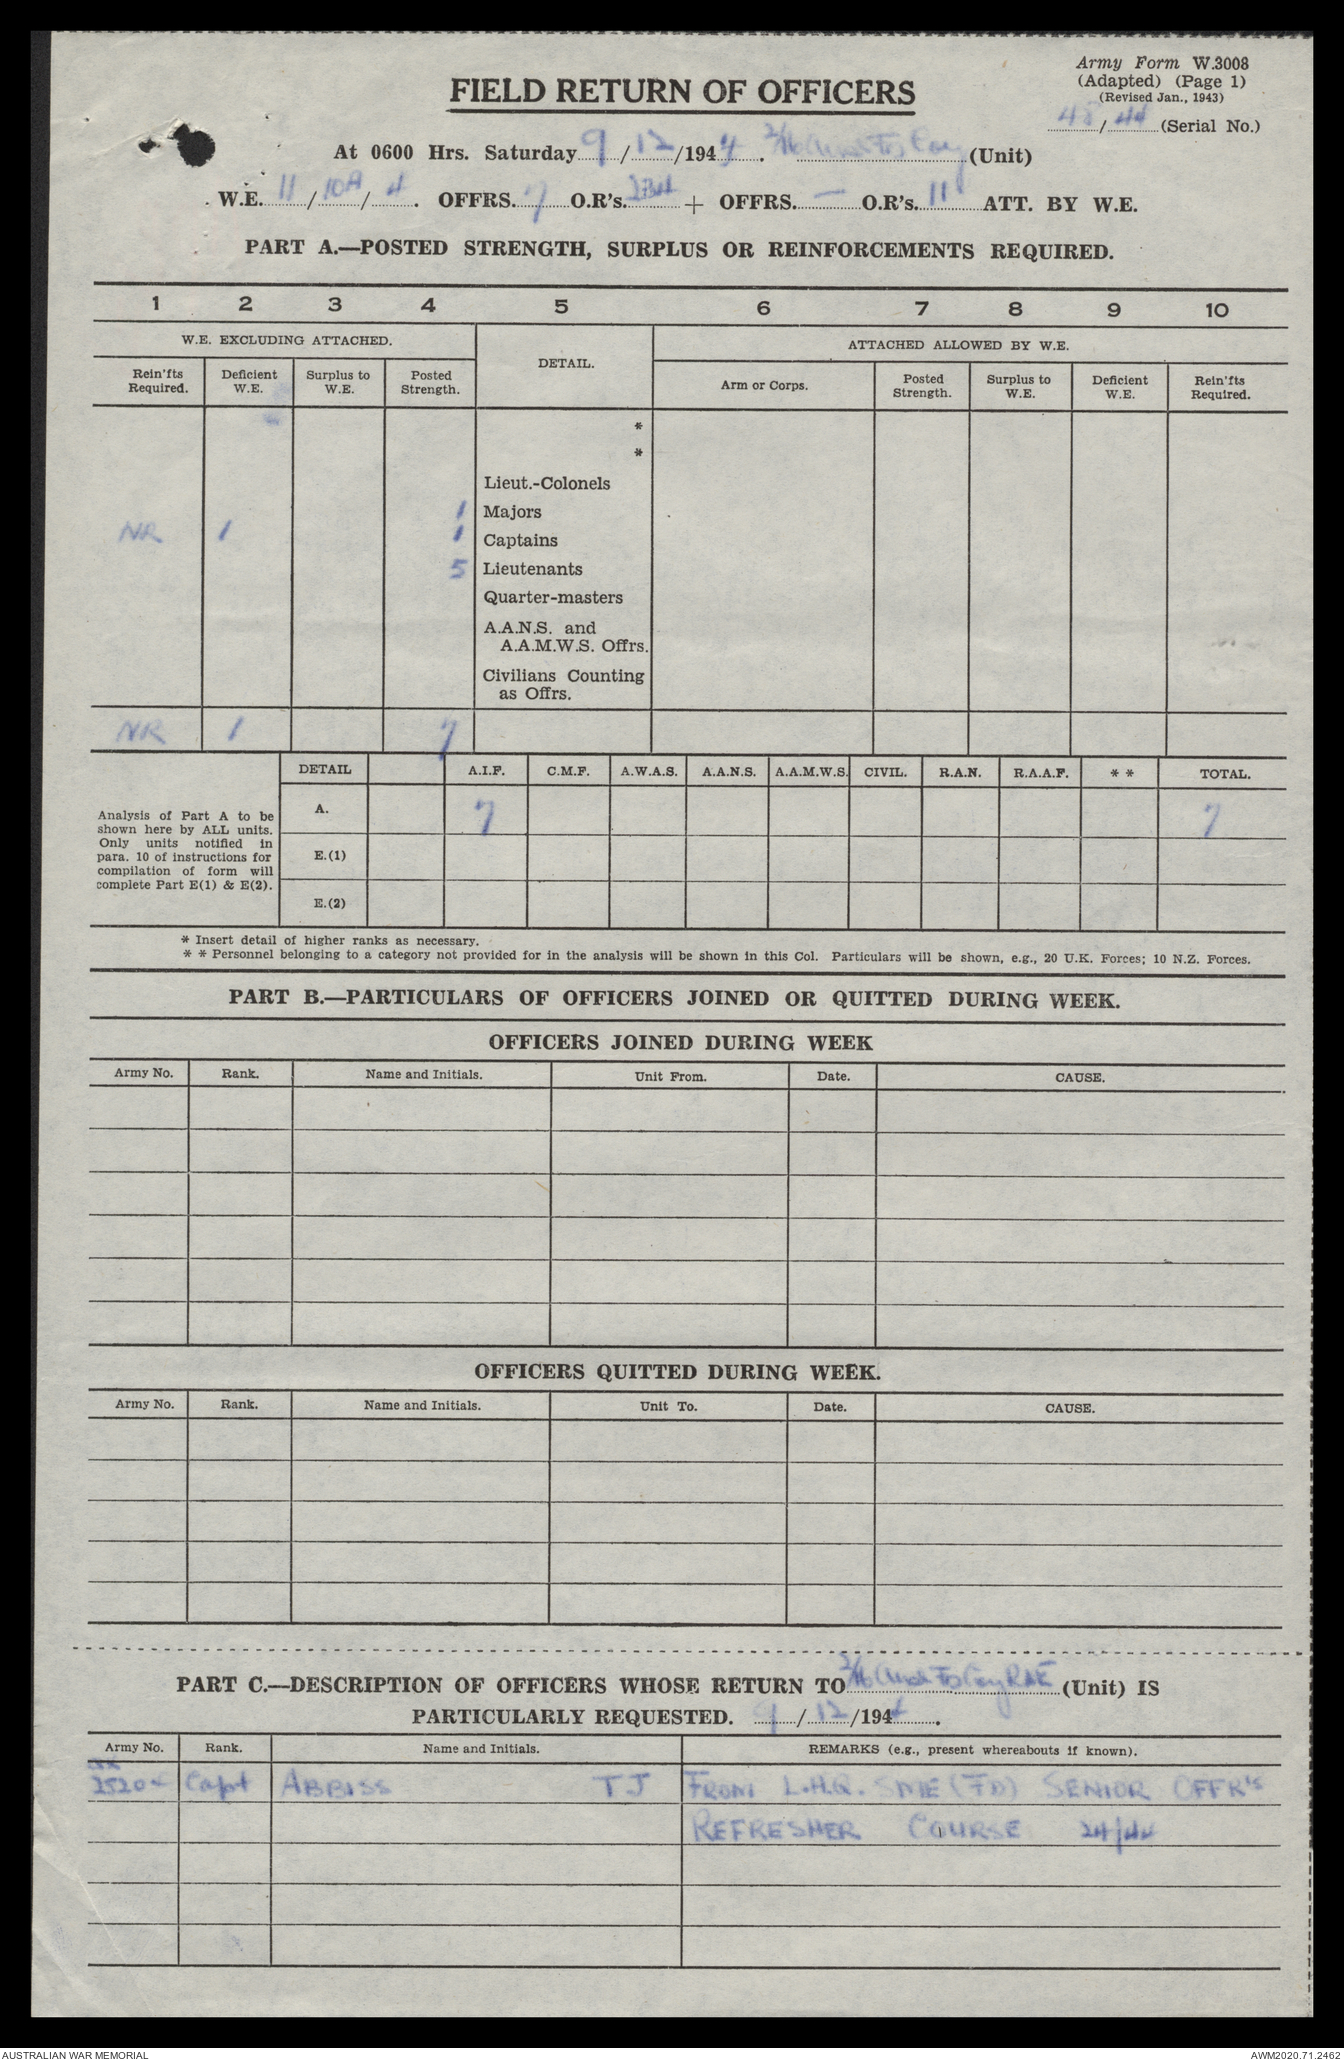 Army Form W.3008
(Adapted) (Page 1)
(Revised Jan., 1943)
48/44 (Serial No.)
FIELD RETURN OF OFFICERS
At 0600 Hrs. Saturday 9/12/1944. 2/16 Aust Fd Coy (Unit)
W.E. 11/10A/4. OFFRS. 7 O.R's. 234 + OFFRS. — O.R's. 11 ATT. BY W.E.
PART A.—POSTED STRENGTH, SURPLUS OR REINFORCEMENTS REQUIRED.
1 2 3 4 5 6 7 8 9 10
W.E. EXCLUDING ATTACHED. DETAIL. ATTACHED ALLOWED BY W.E.
Rein'fts Required. Deficient W.E. Surplus to W.E. Posted Strength. Arm or Corps. Posted Strength. Surplus to W.E. Deficient W.E. Rein'fts Required.
*
*
Lieut.-Colonels
1 Majors
NR 1 1 Captains
5 Lieutenants
Quarter-masters
A.A.N.S. and
A.A.M.W.S. Offrs.
Civilians Counting
as Offrs.
NR 1 7
DETAIL A.I.F. C.M.F. A.W.A.S. A.A.N.S. A.A.M.W.S. CIVIL. R.A.N. R.A.A.F. * * TOTAL.
Analysis of Part A to be
shown here by ALL units.
Only units notified in
para. 10 of instructions for
compilation of form will
complete Part E(1) & E(2).
A. 7 7
E.(1)
E.(2)
* Insert detail of higher ranks as necessary.
* * Personnel belonging to a category not provided for in the analysis will be shown in this Col. Particulars will be shown, e.g., 20 U.K. Forces; 10 N.Z. Forces.
PART B.—PARTICULARS OF OFFICERS JOINED OR QUITTED DURING WEEK.
OFFICERS JOINED DURING WEEK
Army No. Rank. Name and Initials. Unit From. Date. CAUSE.
OFFICERS QUITTED DURING WEEK.
Army No. Rank. Name and Initials. Unit To. Date. CAUSE.
PART C.—DESCRIPTION OF OFFICERS WHOSE RETURN TO 2/16 Aust Fd Coy RAE (Unit) IS
PARTICULARLY REQUESTED. 9/12/1944.
Army No. Rank. Name and Initials. REMARKS (e.g., present whereabouts if known).
Capt ABBISS TJ FROM L.H.Q. SME (FD) SENIOR OFFR'S
REFRESHER COURSE 24/44
AUSTRALIAN WAR MEMORIAL
AWM2020.71.2462